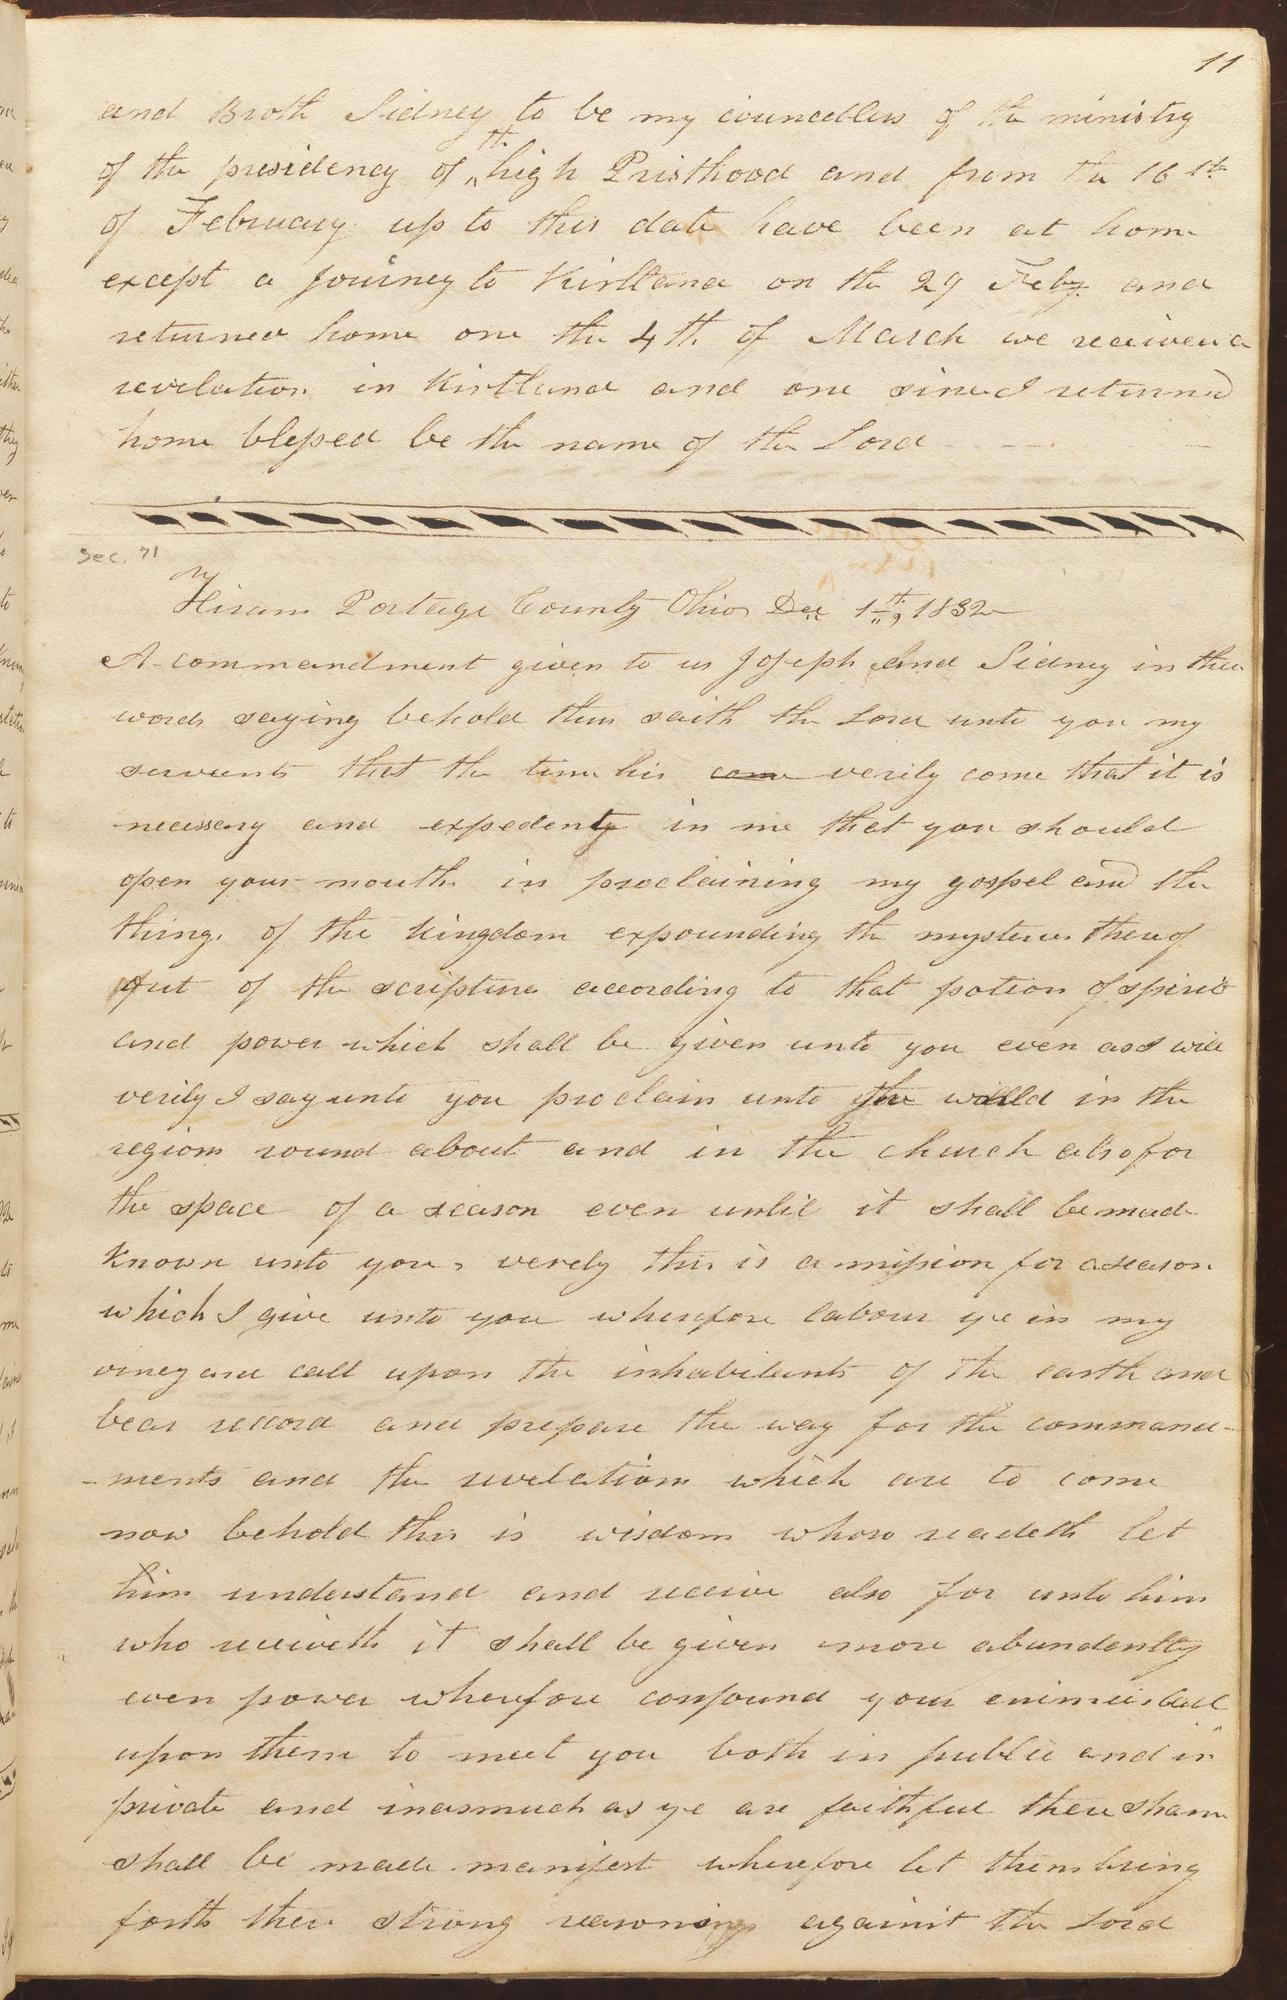 11
and Broth Sidney to be my councellers of the ministry
of the presidency of th high Pristhood and from the 16th
of February up to this date have been at home
except a Journey to Kirtland on the 29 Feby and
returned home one the 4th of March we received a
revelation in Kirtland and one since I returned
home blessed be the name of the Lord
Sec. 71
Hiram Portage County Ohio Dec 1th, 1832
A commandment given to us Joseph and Sidney in these
words saying behold thus saith the Lord unto you my
servents that the time his come verily come that it is
necessary and expedent in me that you should
open your mouths in proclaining my gospel and the
things of the kingdom expounding the mysteries thereof
out of the scriptures according to that potion of spirit
and power which shall be given unto you even as I will
verily I say unto you proclaim unto the world in the
regions round about and in the church also for
the space of a season even until it shall be made
known unto you, verely this is a mission for a season
which I give unto you wherefore labour ye in my
vineyard call upon the inhabitants of the earth and
bear record and prepare the way for the command-
-ments and the revelations which are to come
now behold this is wisdom whoso readeth let
him understand and receive also for unto him
who receiveth it shall be given more abundently
even power wherefore confound your enimies call
upon them to meet you both in public and in
private and inasmuch as ye are faithful their sham
shall be made manifest wherefore let them bring
forth their strong reasonings against the Lord